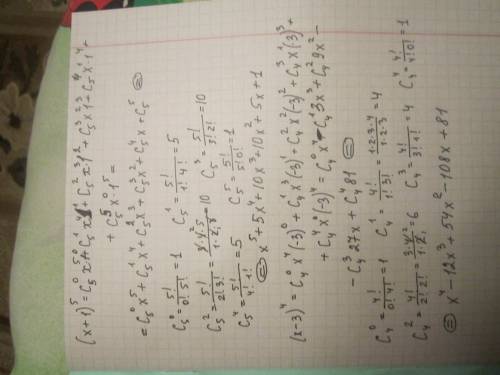 (x+1)⁵ = C₅⁰x⁵1⁰ + C₅¹x⁴1¹ + C₅²x³1² + C₅³x²1³ + C₅⁴x¹1⁴ +
+ C₅⁵x⁰1⁵ =
= C₅⁰x⁵ + C₅¹x⁴ + C₅²x³ + C₅³x² + C₅⁴x + C₅⁵ =
C₅⁰ = 5!/0!5! = 1 C₅¹ = 5!/1!4! = 5
C₅² = 5!/2!3! = 10 C₅³ = 5!/3!2! = 10
C₅⁴ = 5!/4!1! = 5 C₅⁵ = 5!/5!0! = 1
= x⁵+5x⁴+10x³+10x²+5x+1
(x-3)⁴ = C₄⁰x⁴(-3)⁰ + C₄¹x³(-3)¹ + C₄²x²(-3)² + C₄³x¹(3)³ +
+ C₄⁴x⁰(-3)⁴ = C₄⁰x⁴ - C₄¹3x³ + C₄²9x² -
- C₄³27x + C₄⁴81 =
C₄⁰ = 4!/0!4! = 1 C₄¹ = 4!/1!3! = 1·2·3·4/1·2·3 = 4
C₄² = 4!/2!2! = 3·4/1·2 = 6 C₄³ = 4!/3!1! = 4 C₄⁴ = 4!/4!0! = 1
= x⁴-12x³+54x²-108x+81